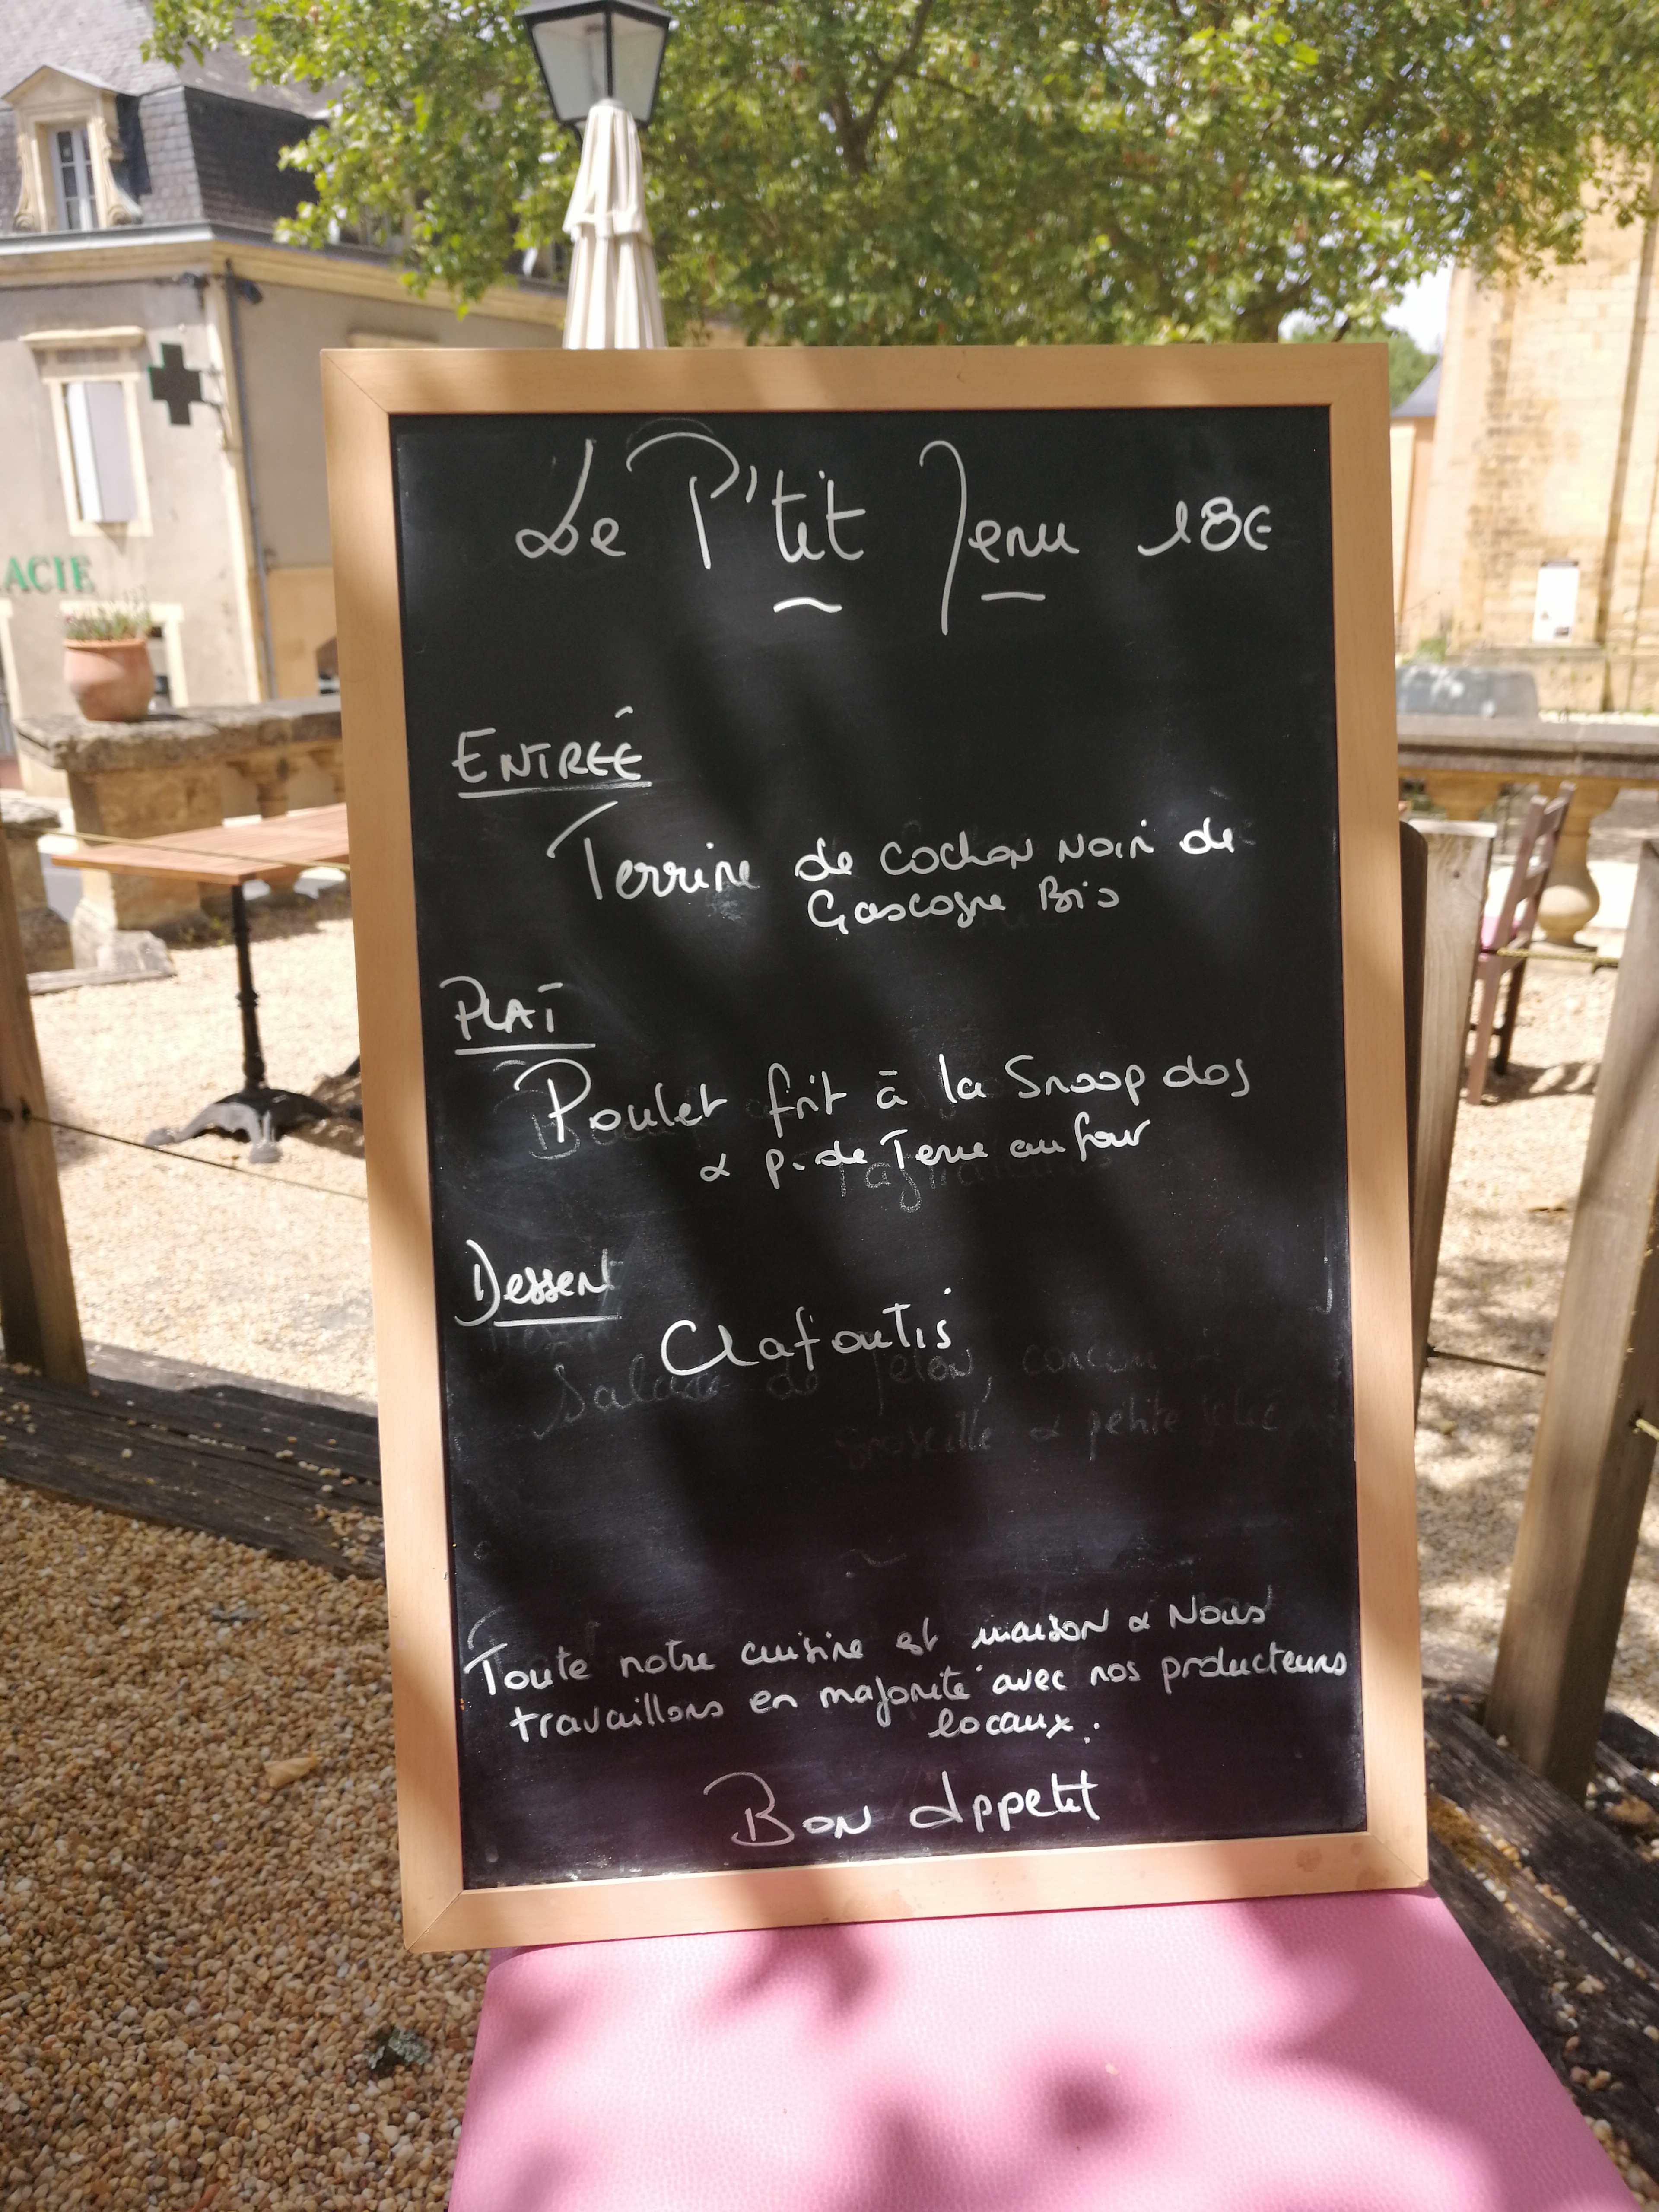 ACIE
Le P'tit Menu 18€
ENTRÉE
Terrine de cochon noir de
Gascogne Bio
PLAT
Poulet frit à la Snoop dog
& p. de Terre au four
Dessert
Clafoutis
Salade de Melon, concombre
groseille & petite
Toute notre cuisine est maison & Nous
travaillons en majorité avec nos producteurs
locaux.
Bon Appetit